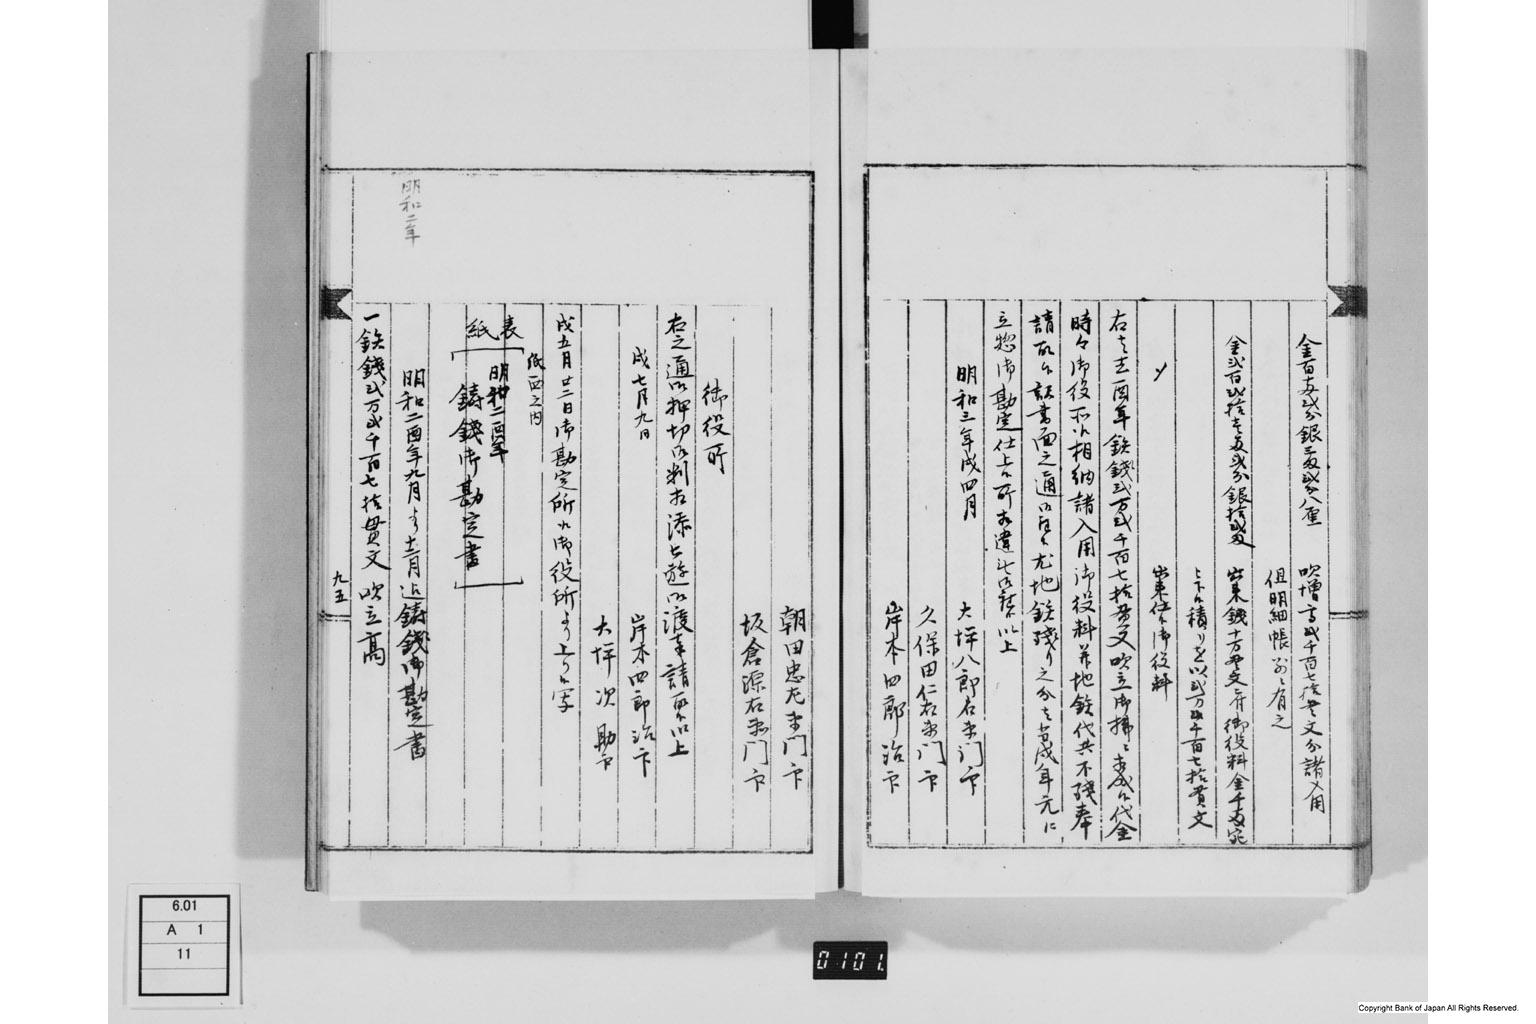 金百両弐分銀三両弐分八厘
吹増高弐千百七拾貫文分諸入用
但明細帳別ニ有之
金弐百弐拾壱両弐分銀拾弐匁
出来銭十万貫文ニ付御役料金千両宛
上ケ候積リを以弐万弐千百七拾貫文
出来仕候御役料
〆
右者去酉年鉄銭弐万弐千百七拾貫文吹立御払ニ相成候代金
時々御役所江相納諸入用御役料并地鉄代共不残奉
請取候訳書面之通御座候尤地鉄残リ之分者当戌年元に
立惣御勘定仕上候所相違無御座候以上
明和三年戌四月
大坪八郎右衛門印
久保田仁右衛門印
岸本四郎治印
朝田忠左衛門印
坂倉源右衛門印
御役所
右之通御押切御判相添被遊御渡奉請取候以上
戌七月九日
岸本四郎治印
大坪次助印
戌五月廿二日御勘定所江御役所より上り候写
紙西之内
表紙
明和二酉年
鋳銭御勘定書
明和二年
明和二酉年九月より十二月迄鋳銭御勘定書
一鉄銭弐万弐千百七拾貫文 吹立高
九五
6.01
A 1
11
0101.
Copyright Bank of Japan All Rights Reserved.